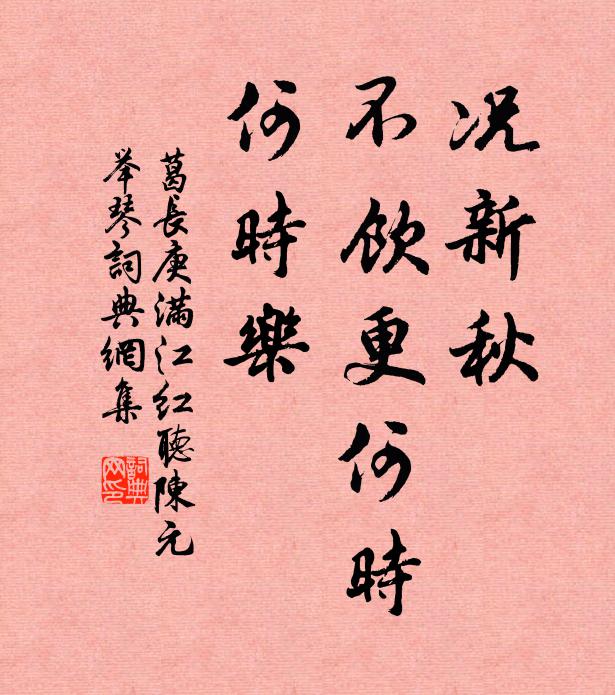 况新秋
不飲更何時
何時樂
葛長庚满江红聽陳元
举琴詞典網集
詞典网印